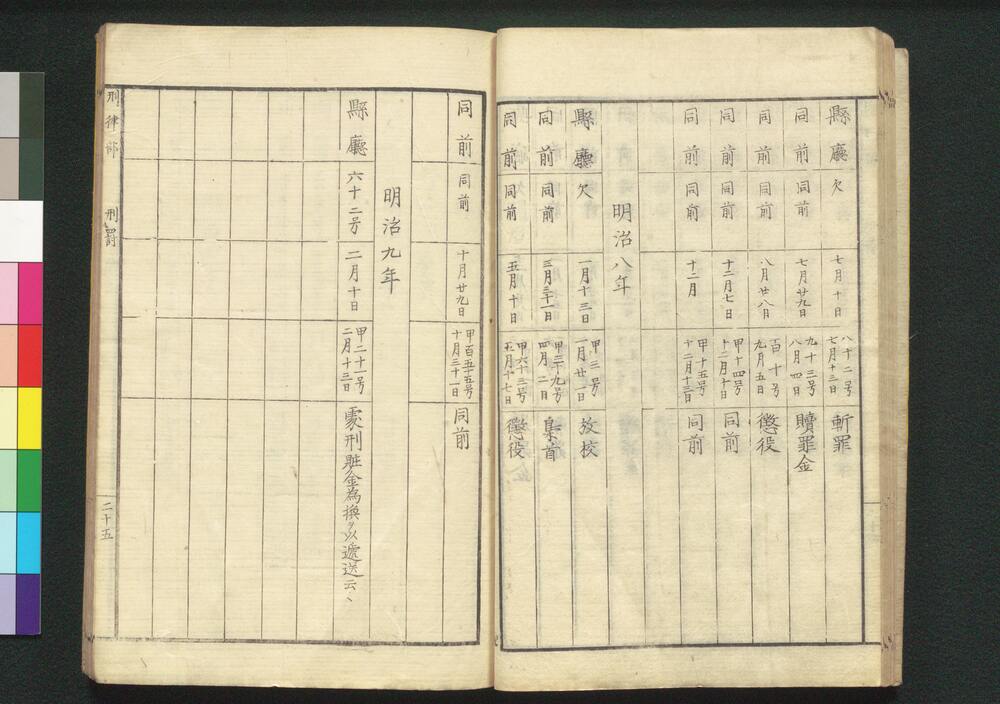 縣廳 欠 七月十日 八十二号 七月十三日 斬罪
同前 同前 七月廿九日 九十三号 八月四日 贖罪金
同前 同前 八月廿八日 百十号 九月五日 懲役
同前 同前 十二月七日 甲十四号 十二月十日 同前
同前 同前 十二月 甲十五号 十二月十三日 同前
明治八年
縣廳 欠 一月十三日 甲三号 一月廿一日 放校
同前 同前 三月三十一日 甲三十九号 四月二日 梟首
同前 同前 五月十日 甲六十三号 五月十七日 懲役
同前 同前 十月廿九日 甲百五十五号 十月三十一日 同前
明治九年
縣廳 六十二号 二月十日 甲二十一号 二月十三日 處刑贓金為換ヲ以逓送云々
刑律部 刑罰 二十五